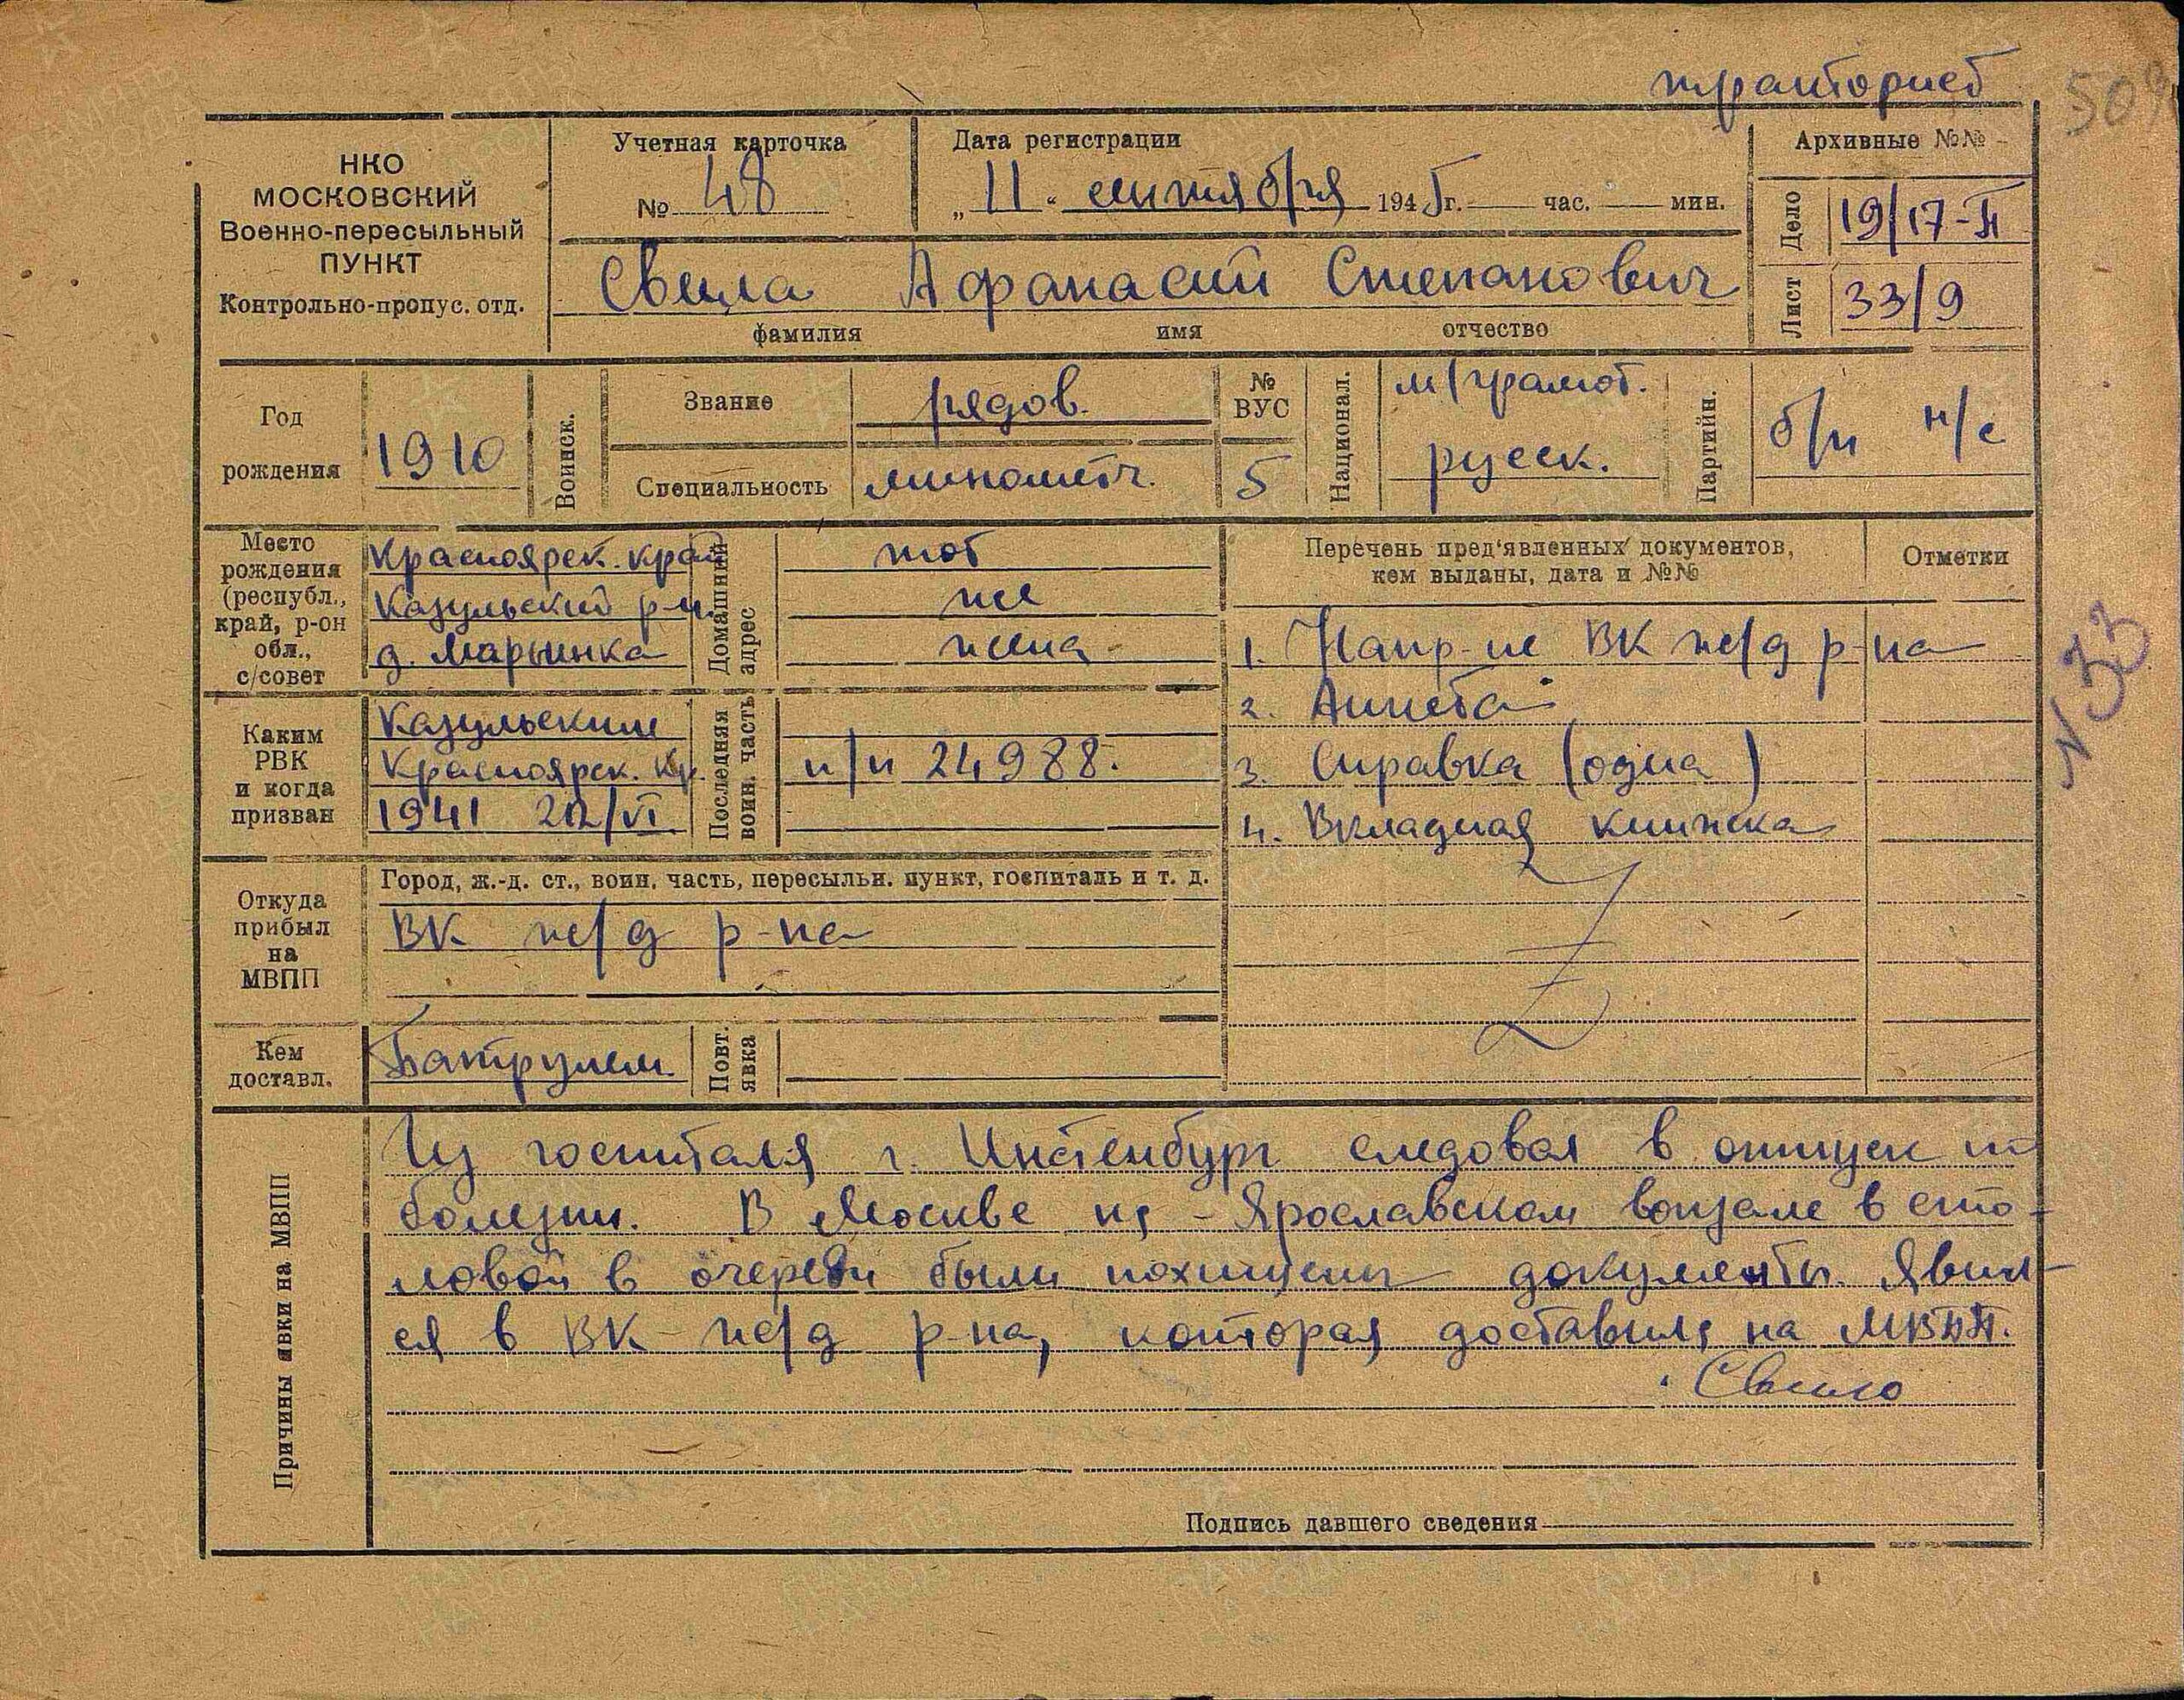 тракторист
509
НКО
МОСКОВСКИЙ
Военно-пересыльный
ПУНКТ
Контрольно-пропус. отд.
Учетная карточка
№ 48
Дата регистрации
„ 11 “ сентября 1945 г. час. мин.
Архивные №№
Дело 19/17-П
Лист 33/9
Свила Афанасий Степанович
фамилия имя отчество
Год
рождения
1910
Воинск.
Звание рядов.
Специальность минометч.
№
ВУС
5
Национал.
м/грамот.
русск.
Партийн.
б/п н/с
Место
рождения
(республ.,
край, р-он
обл.,
с/совет
Красноярск. край
Казульский р-н.
д. Марьинка
Домашний
адрес
тот
же
жена
Перечень пред'явленных документов,
кем выданы, дата и №№
Отметки
1. Напр-ие ВК же/д р-на
2. Анкета
3. Справка (одна)
4. Вкладная книжка
N 33
Каким
РВК
и когда
призван
Казульским
Красноярск. кр.
1941 22/VI
Последняя
воин. часть
п/п 24988.
Откуда
прибыл
на
МВПП
Город, ж.-д. ст., воин. часть, пересыльн. пункт, госпиталь и т. д.
ВК же/д р-на
Кем
доставл.
Патрулем.
Повт.
явка
Причины явки на МВПП
Из госпиталя г. Инстенбург следовал в отпуск по
болезни. В Москве на Ярославском вокзале в сто-
ловой в очереди были похищены документы. Явил-
ся в ВК же/д р-на, которая доставила на МВПП.
Свило
Подпись давшего сведения
ПАМЯТЬ
НАРОДА